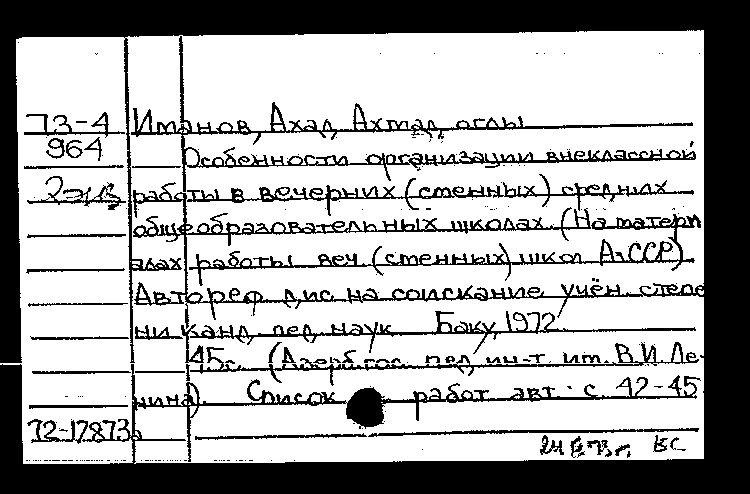 73-4 Иманов, Ахад Ахмад оглы
964 Особенности организации внеклассной
2экз работы в вечерних (сменных) средних
общеобразовательных школах. (На матери
алах работы веч. (сменных) школ АзССР)
Автореф. дис. на соискание учён. степе
ни канд. пед. наук Баку, 1972.
45с. (Азерб. гос. пед. ин-т им. В.И. Ле-
нина). Список работ авт.: с. 42-45
72-17873